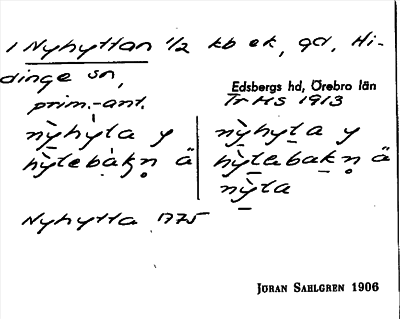 1 Nyhyttan 1/2 kb ek, gd, Hi-
dinge sn,
Edsbergs hd, Örebro län
prim.-ant.
Tr HS 1913
nỳhỳta y
hỳtebàkn̥ ä
nỳhyta y
hỳtebakn̥ ä
nỳta
Nyhytta 1775
JÖRAN SAHLGREN 1906